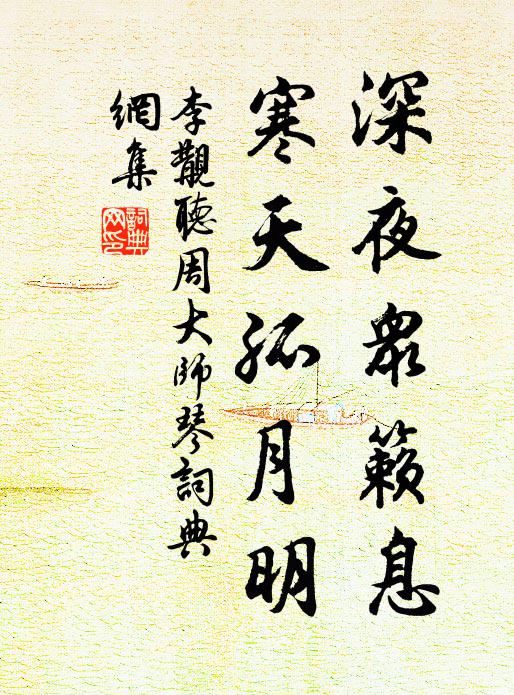 深夜眾籟息
寒天孤月明
李觀聽周大師琴詞典
網集
詞典
网印